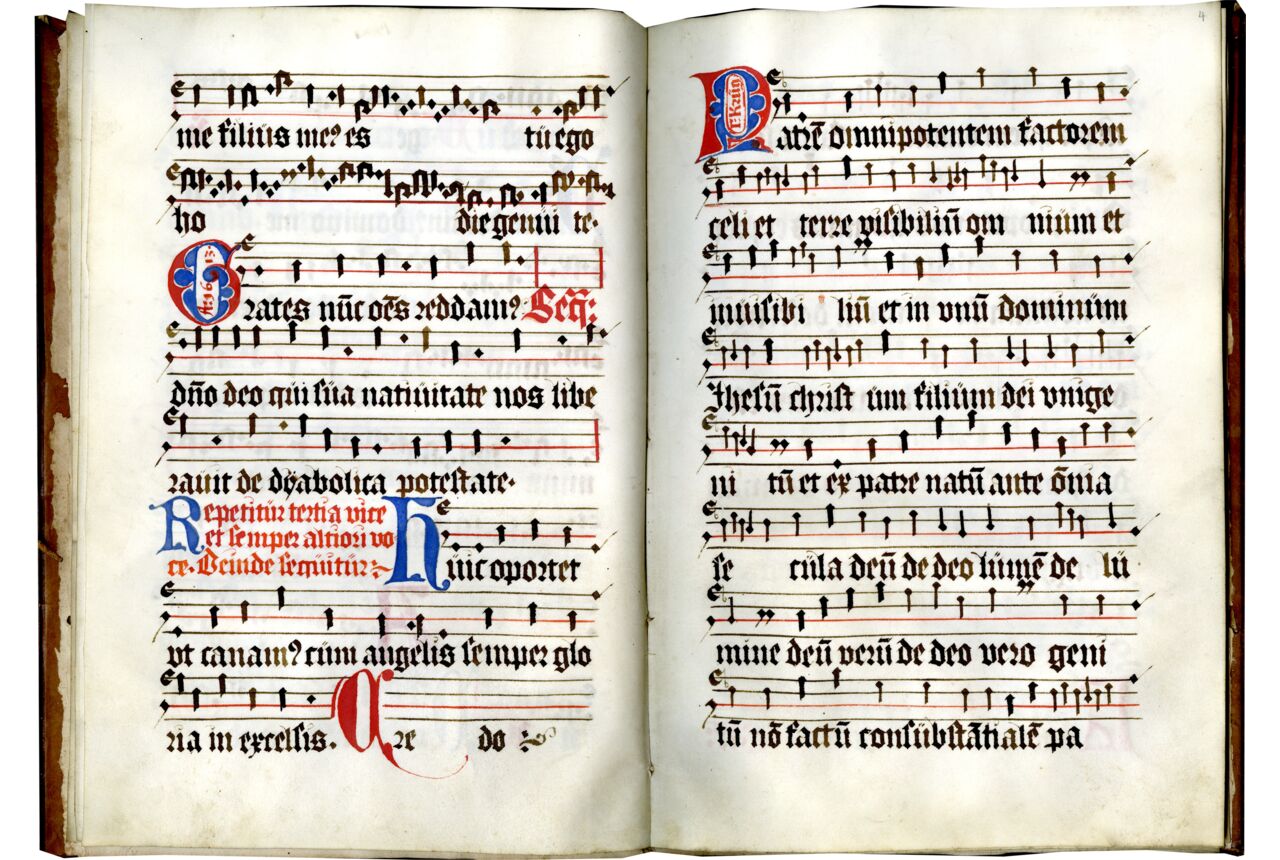 me filius me? es tu ego
ho die genui te.
Grates nūc oēs reddam? Seq̄:
A: 1613.
dn̄o deo qui sua natiuitate nos libe
rauit de dyabolica potestate.
Repetitur tertia vice
et semper altiori vo
ce. Deinde sequitur:
Huic oportet
vt canam? cum angelis semper glo
ria in excelsis. Cre do
4
Patrē omnipotentem factorem
celi et terre visibiliū om nium et
inuisibi liū et in vnū dominum
Jhesū christ um filium dei vnige
ni tū et ex patre natū ante ōnia
se cula deū de deo lumē de lu
mine deū verū de deo vero geni
tū nō factū consubstātialē pa